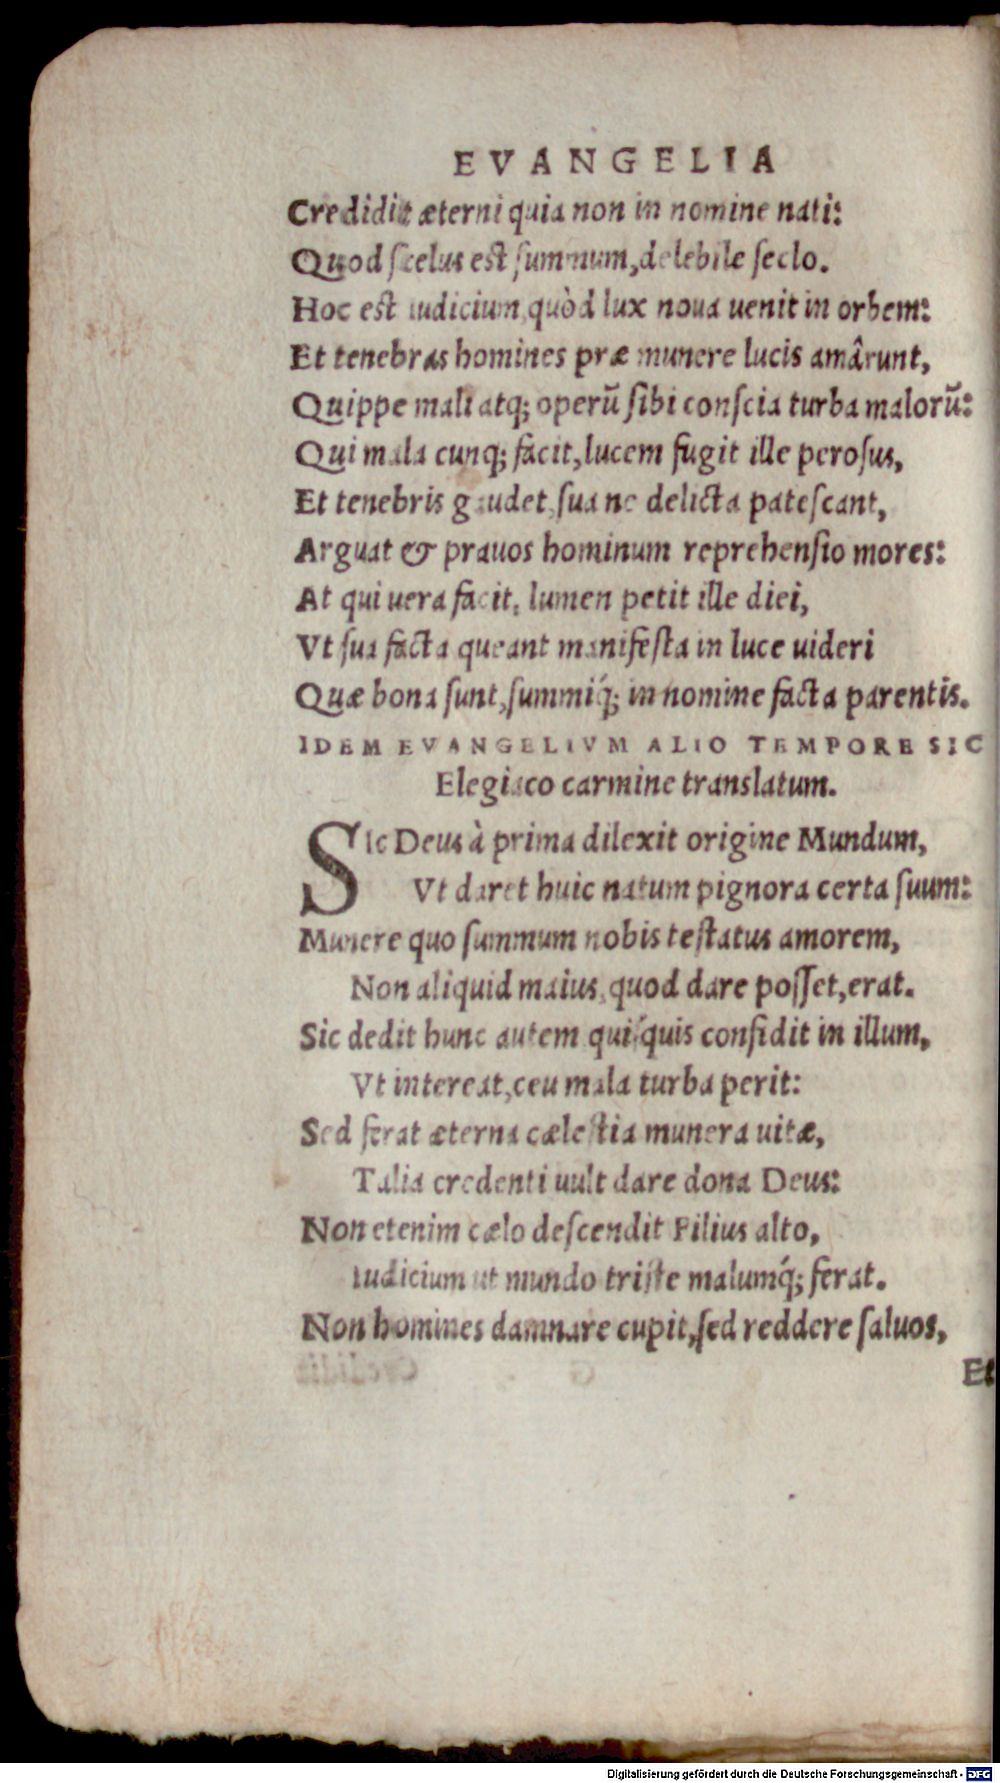 EVANGELIA
Credidit æterni quia non in nomine nati:
Quod scelus est summum, delebile seclo.
Hoc est iudicium, quòd lux noua uenit in orbem:
Et tenebras homines præ munere lucis amârunt,
Quippe mali atq; operū sibi conscia turba malorū:
Qui mala cunq; facit, lucem fugit ille perosus,
Et tenebris gaudet, sua ne delicta patescant,
Arguat & prauos hominum reprehensio mores:
At qui uera facit, lumen petit ille diei,
Vt sua facta queant manifesta in luce uideri
Quæ bona sunt, summiq́; in nomine facta parentis.
IDEM EVANGELIVM ALIO TEMPORE SIC
Elegiaco carmine translatum.
SIc Deus à prima dilexit origine Mundum,
Vt daret huic natum pignora certa suum:
Munere quo summum nobis testatus amorem,
Non aliquid maius, quod dare posset, erat.
Sic dedit hunc autem quisquis confidit in illum,
Vt intereat, ceu mala turba perit:
Sed ferat æterna cælestia munera uitæ,
Talia credenti uult dare dona Deus:
Non etenim cælo descendit Filius alto,
Iudicium ut mundo triste malumq́; ferat.
Non homines damnare cupit, sed reddere saluos,
Et
Digitalisierung gefördert durch die Deutsche Forschungsgemeinschaft - DFG